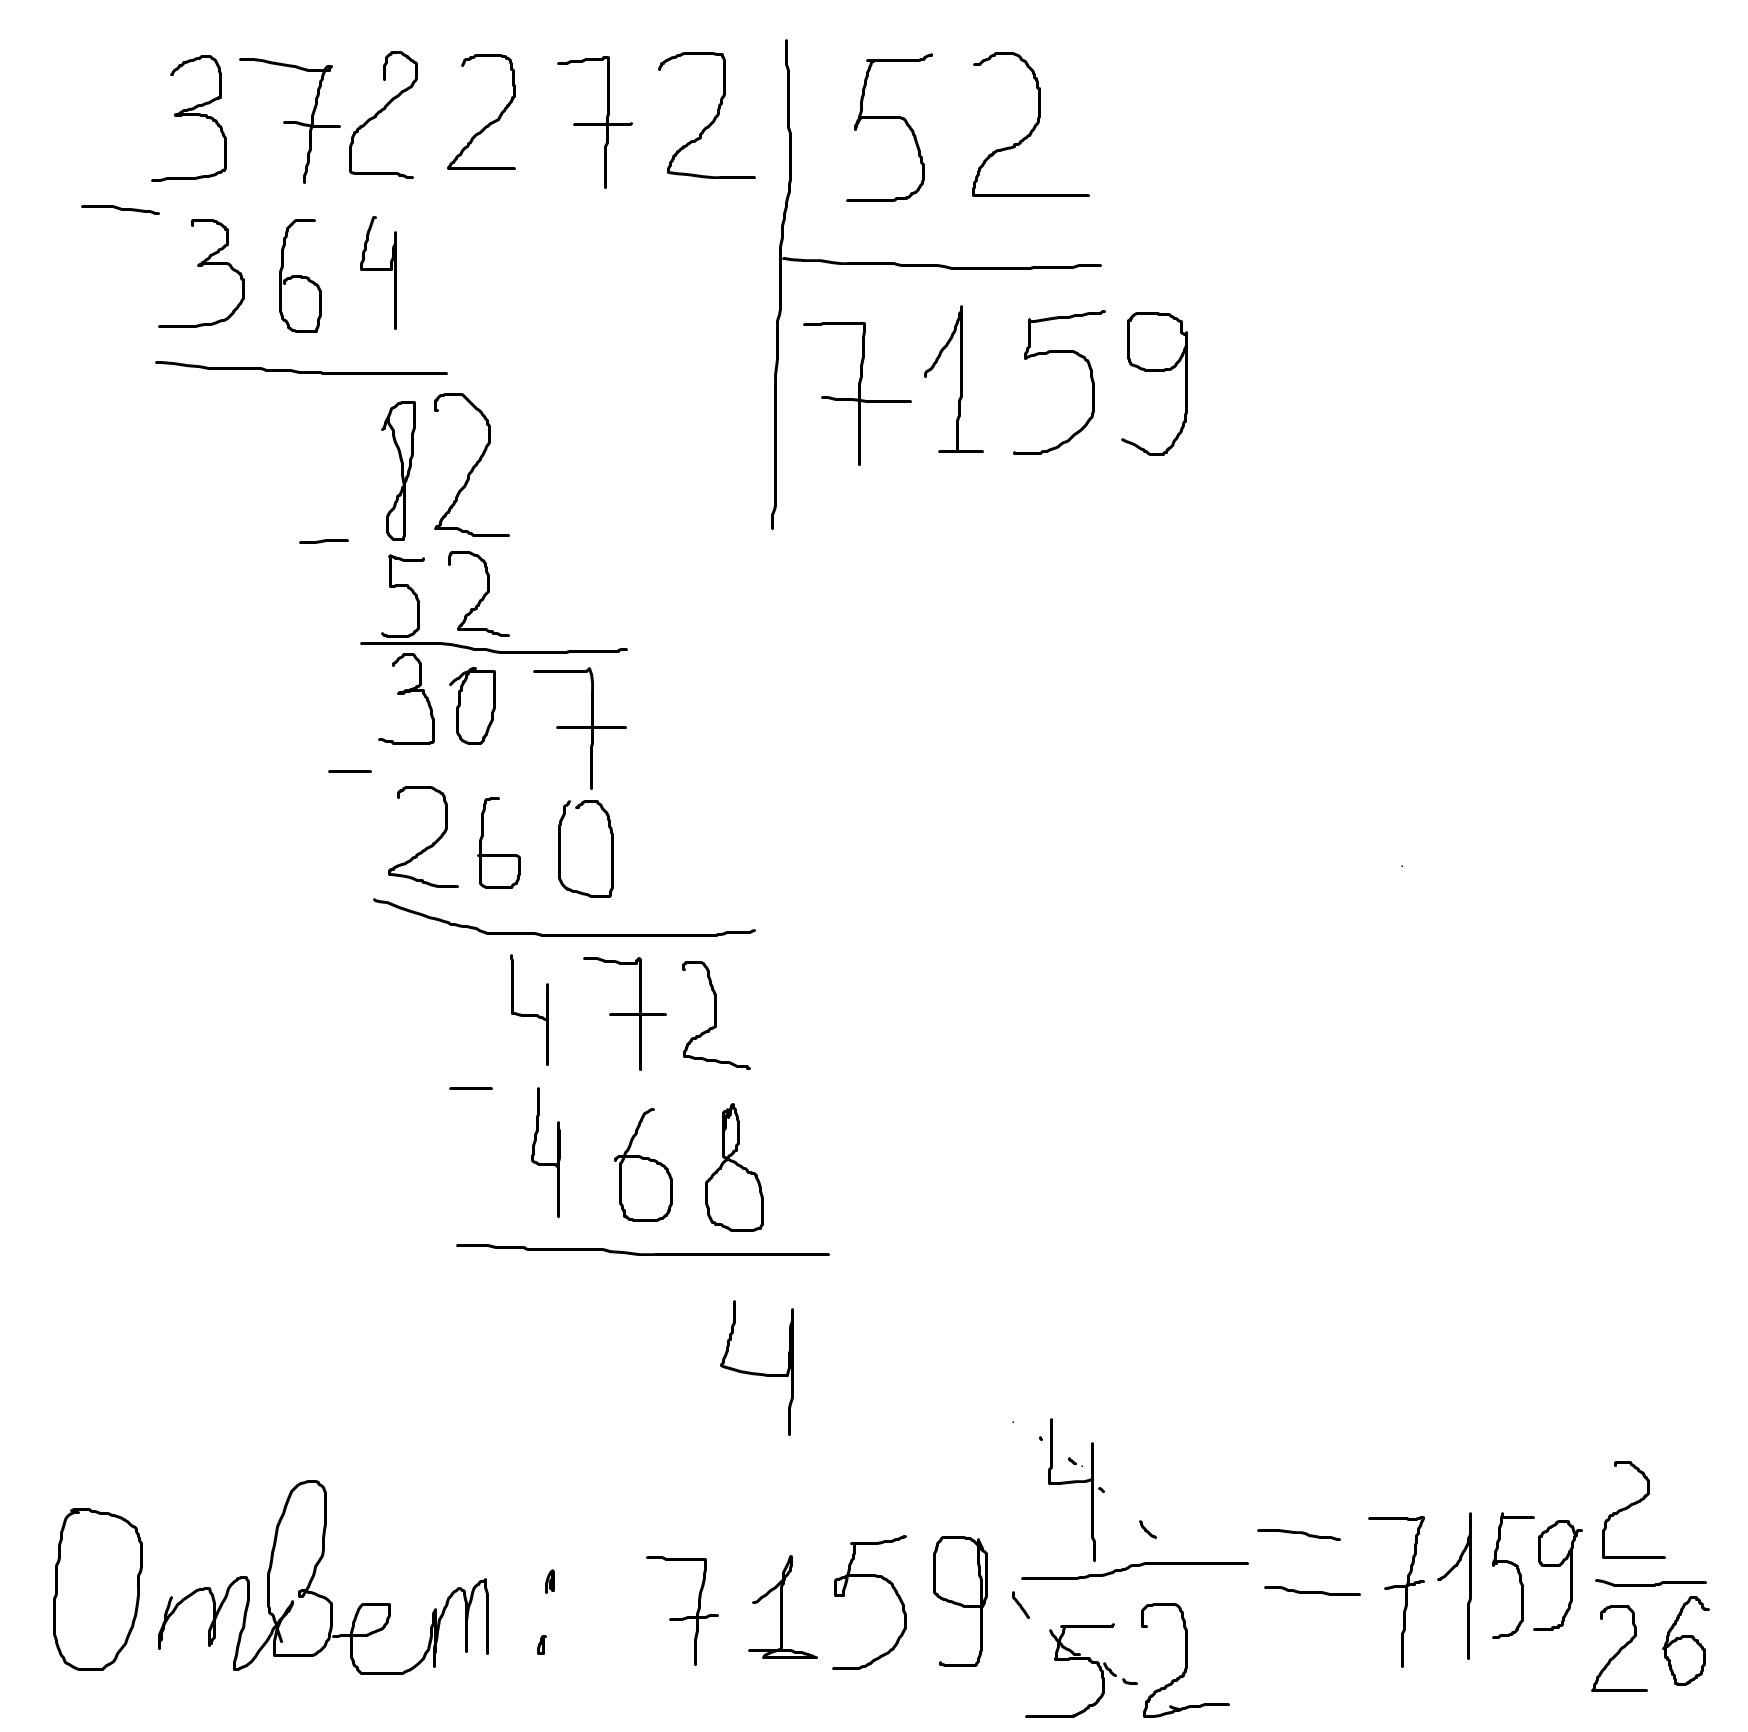 372272 | 52
- 364
7159
82
- 52
307
- 260
472
- 468
4
Ответ: 7159 4/52 = 7159 2/26